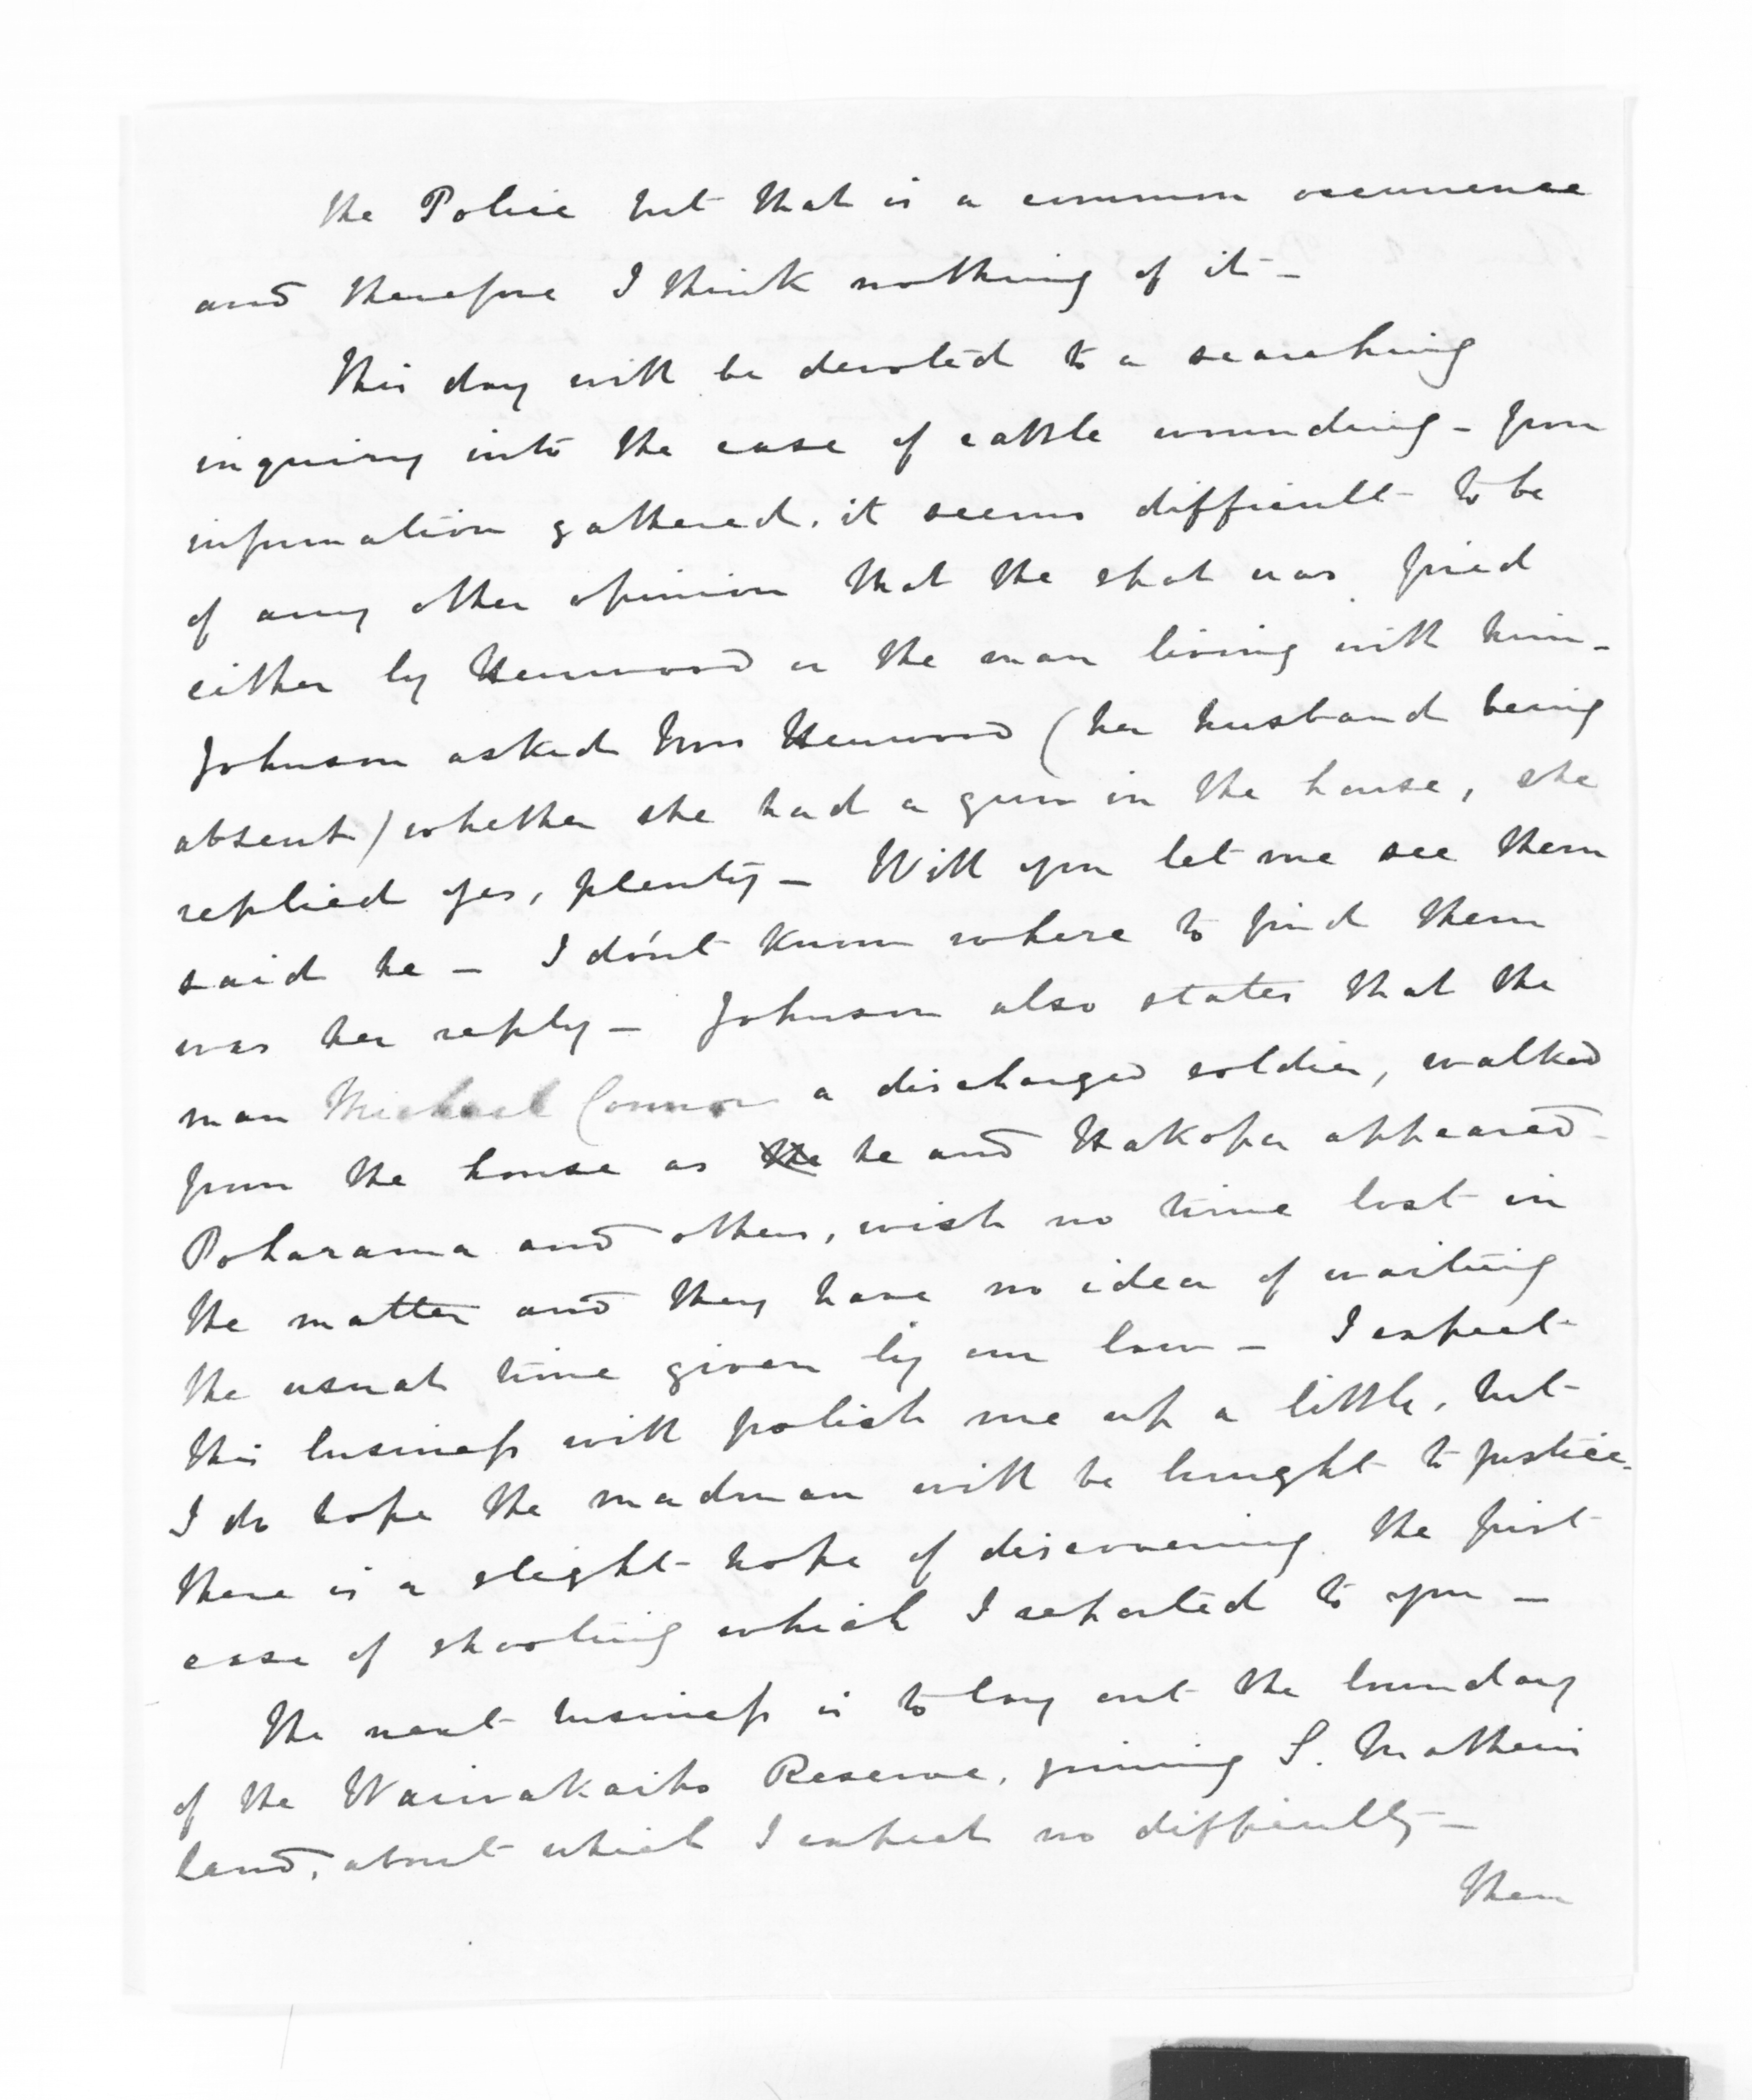 the Police but that is a common occurrence
and therefore I think nothing of it -
This day will be devoted to a searching
inquiry into the case of cattle wounding - from
information gathered, it seems difficult to be
of any other opinion that the shot was fired
either by Henwood or the man living with him -
Johnson asked Mrs Henwood (her husband being
absent) whether she had a gun in the house, she
replied yes, plenty - Will you let me see them
said he - I don't know where to find them
was her reply - Johnson also states that the
man Michael Connor a discharged soldier, walked
from the house as he and Hakopa appeared -
Poharama and others, wish no time lost in
the matter and they have no idea of waiting
the usual time given by our law - I expect
this business will polish me up a little, but
I do hope the madman will be brought to justice.
there is a slight hope of discovering the first
case of shooting which I reported to you -
The next business is to lay out the boundary
of the Waiwakaiho Reserve, joining S. Mathews
land, about which I expect no difficulty -
Then